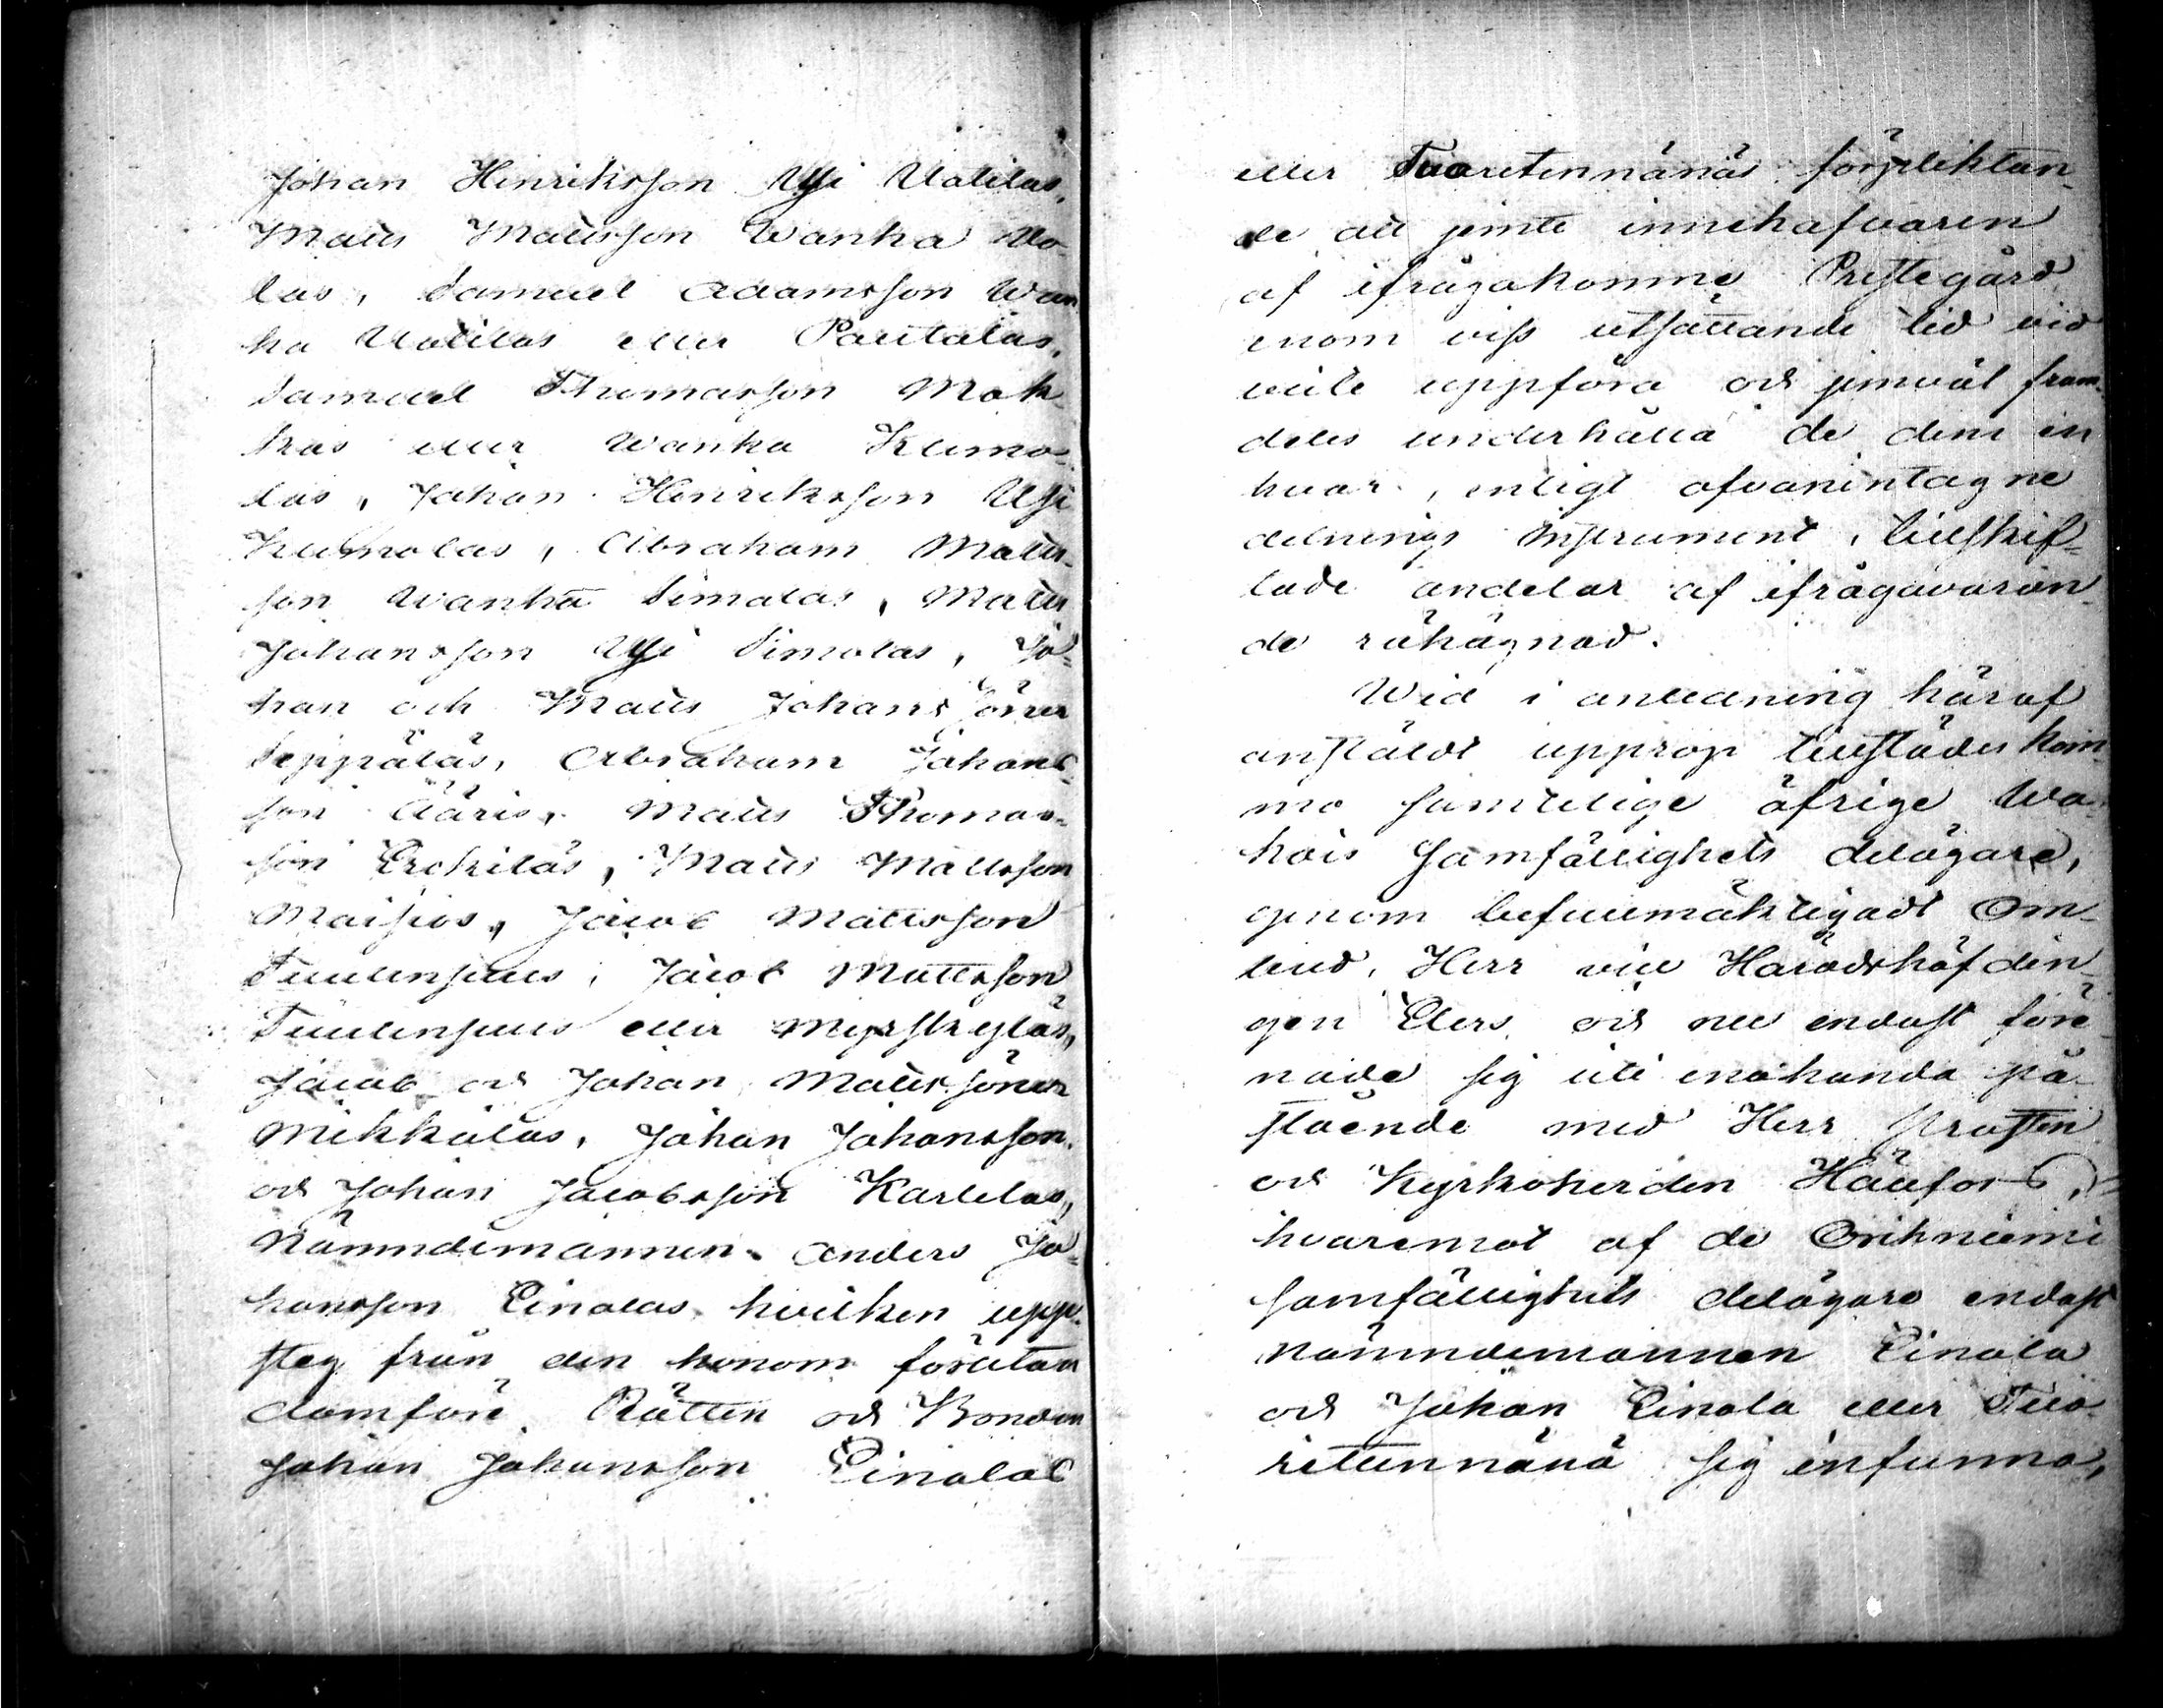 Johan Henriksson Ysi Uotilas,
Matts Mattsson Wanha Uo-
las, Samuel Adamsson Wan
ha Uotilas eller Pantalas,
Samuel Thomasson Mat-
kas eller Wanha Klemo-
las, Johan Henriksson Ysi
Klemolas, Abraham Matts-
son Wanha Simolas, Matts
Johansson Ysi Simolas, Jo-
han och Matts Johans söner
Seppäläs, Abraham Johans-
son Ääris, Matts Thomas-
son Erckiläs, Matts Mattsson
Maisios, Jacob Mattsson
Tuulensuus, Jacob Mattsson
Tuulensuus eller Myrskyläs,
Jacob och Johan Matts söner
Mikkolas, Johan Johansson
och Johan Jacobsson Karlilas,
Nämndemannen Anders Jo-
hansson Einolas hvilken upp-
steg från den honom förutan
domföre Rätten och Bonden
Johan Johansson Einolas
eller Tuoretennänäs förpliktan-
de att jemte innehafvaren
af ifrågakomne Prestegård
inom viss utsättande tid vid
vite uppföra och jemväl fram-
deles underhålla de dem en
hvar, enligt ofvanintagne
delnings Instrument, tillskif-
tade andelar af ifrågavaran-
de råhägnad.
Wid i anledning häraf
anstäldt upprop tillstädes kom-
mo samtelige öfrige Wa-
hois Samfällighets delägare,
genom befullmäktigadt Om-
bud, Herr vice Häradshöfdin-
gen Elers och nu endast före-
nade sig uti enahanda på-
stående med Herr Prosten
och Kyrkoherden Hällfors,
hvaremot af de Orihniemi
samfällighets delägare endast
Nämndemannen Einola
och Johan Einola eller Tuo-
retennänä sig infunno,